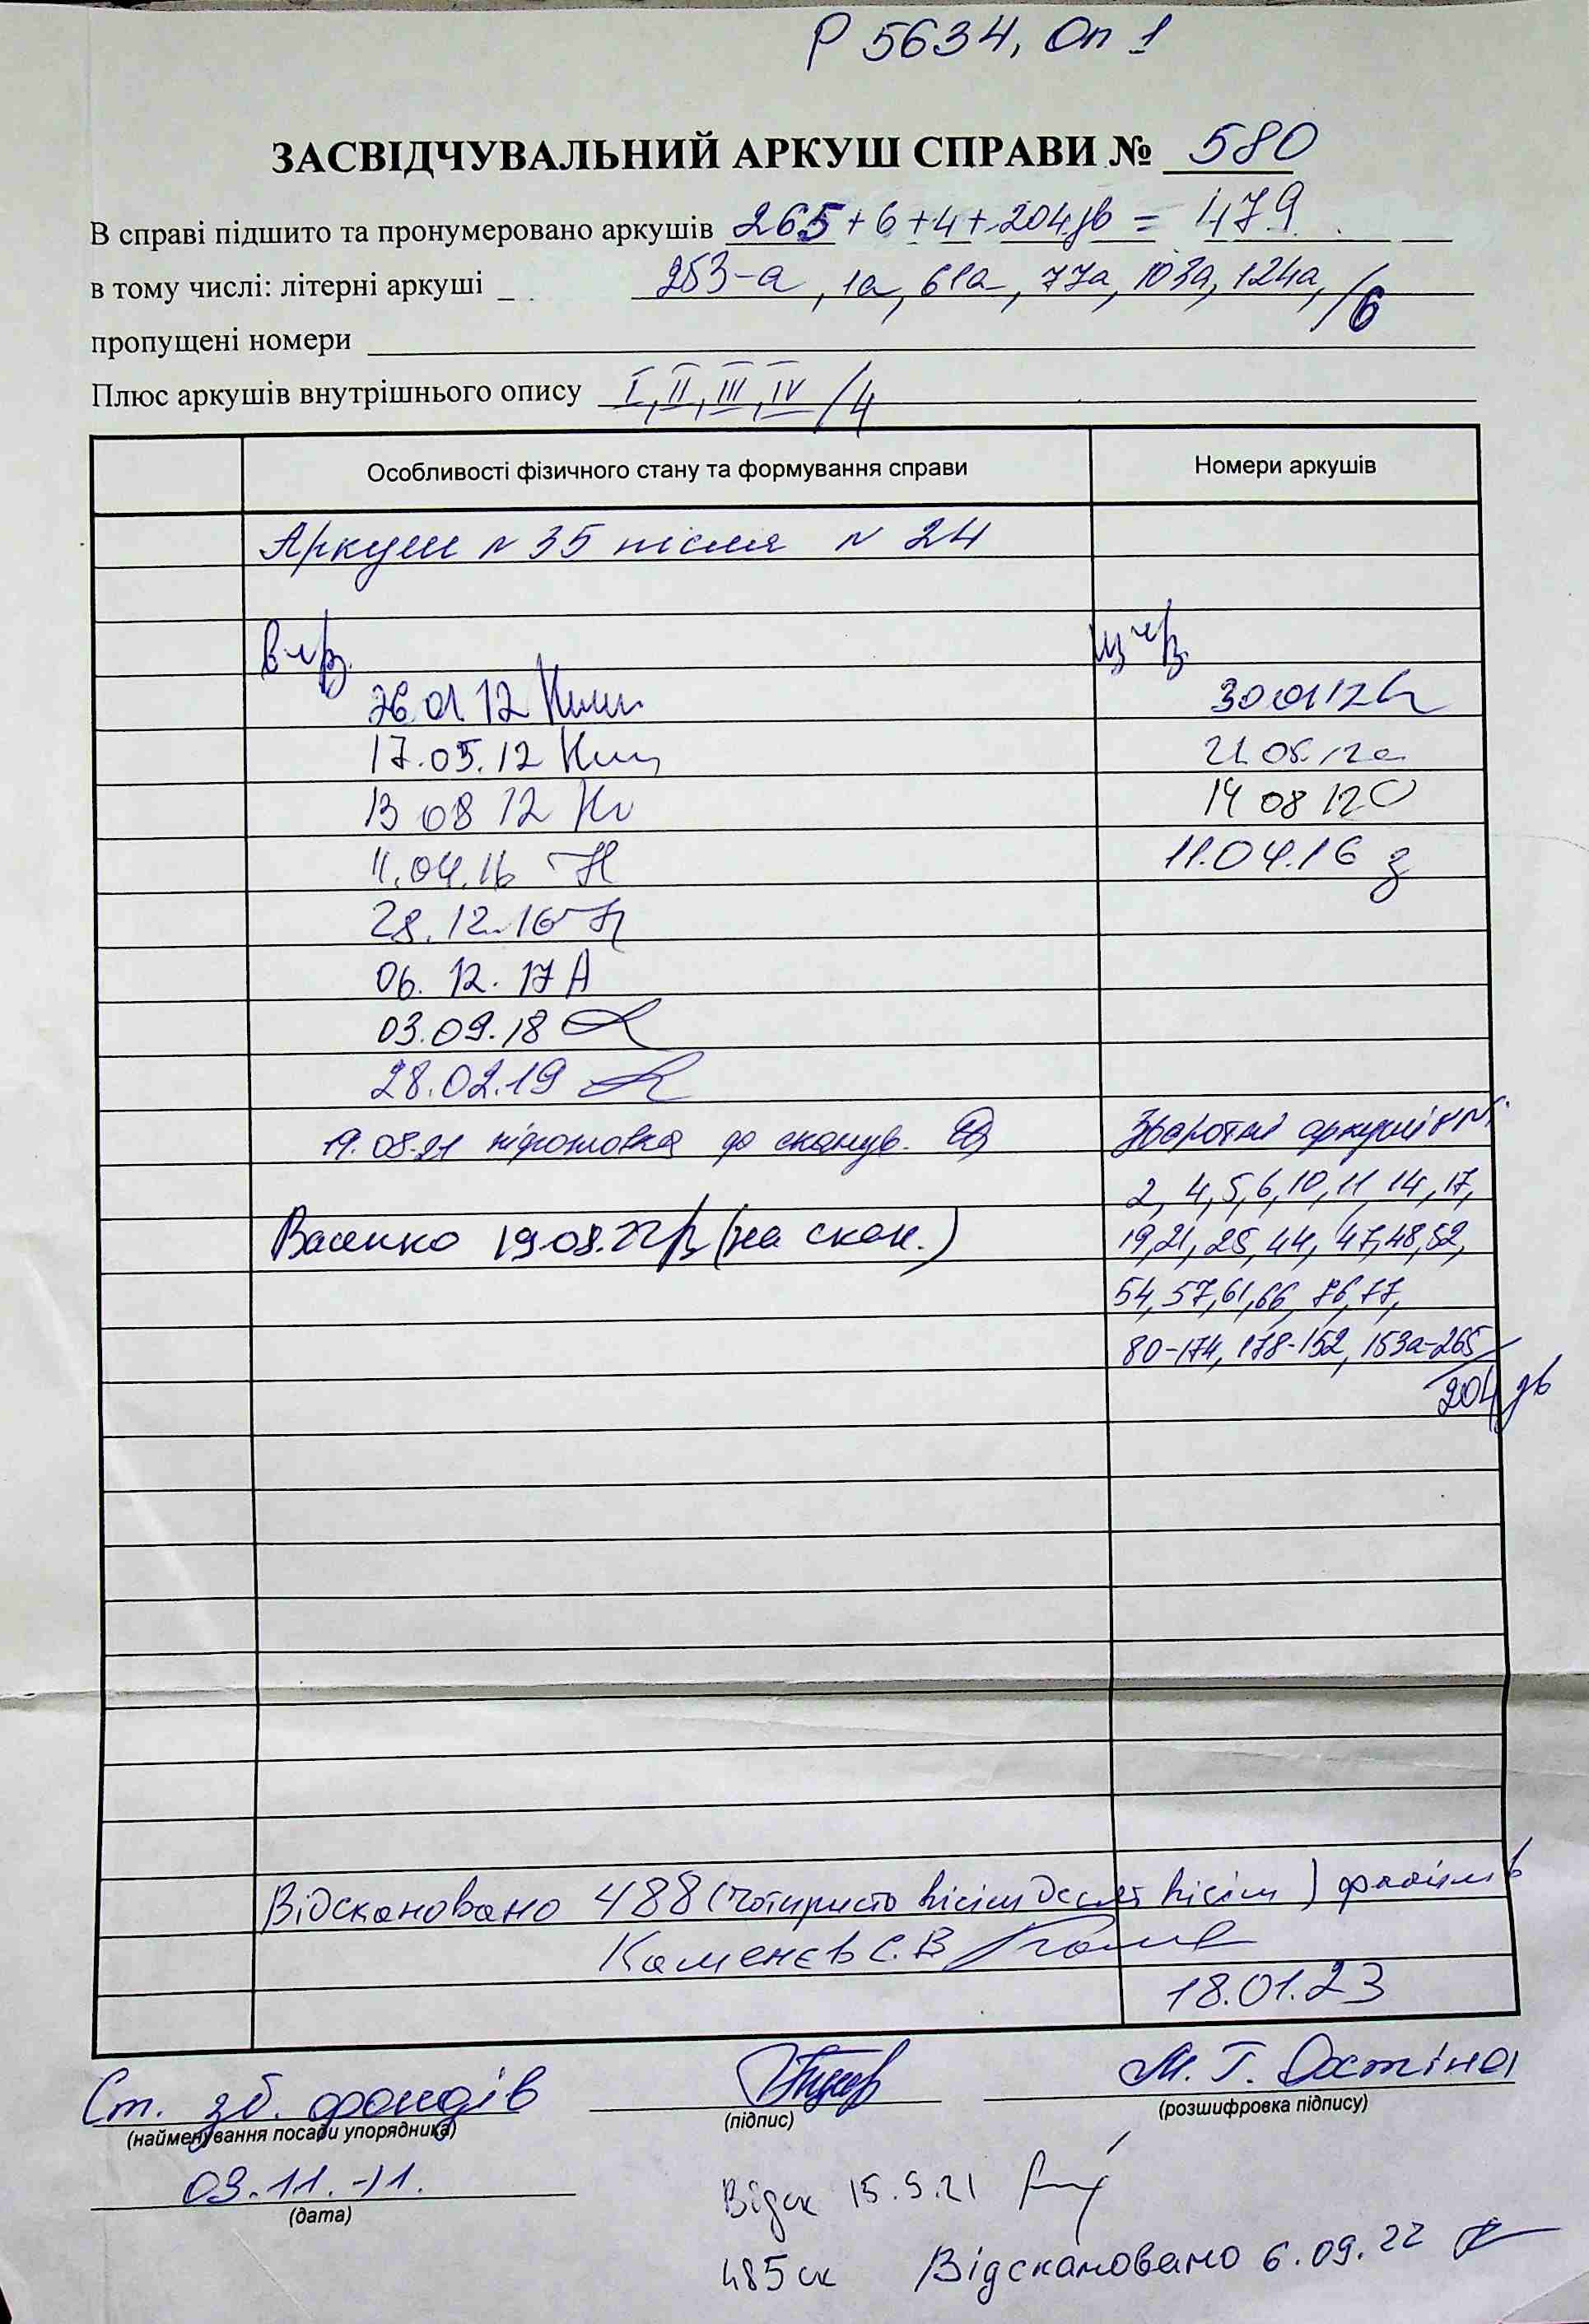 Р 5634, Оп 1
ЗАСВІДЧУВАЛЬНИЙ АРКУШ СПРАВИ № 580
В справі підшито та пронумеровано аркушів 265+6+4+204зв = 479
в тому числі: літерні аркуші 253-а, 1а, 61а, 77а, 103а, 124а, /6
пропущені номери
Плюс аркушів внутрішнього опису I, II, III, IV /4
Особливості фізичного стану та формування справи Номери аркушів
Аркуш N 35 після N 24
26 01 12 30 01 12
17.05.12 21 05 12
13 08 12 14 08 12
11.04.16 11.04.16
28.12.16
06. 12. 17
03.09.18
28.02.19
19.08.21 підготовка до сканув. Зворотні аркуші
2, 4, 5, 6, 10, 11, 14, 17,
19.08.22 (на скан.) 19, 21, 25, 44, 47, 48, 52,
54, 57, 61, 66, 76, 77,
80-174, 178-152, 153а-265
204 зв
Відскановано 488 (чотириста вісімдесят вісім) файлів
Каменєв С.В
18.01.23
Ст. зб. фондів М. Г. Остіна
(найменування посади упорядника) (підпис) (розшифровка підпису)
03.11.-11.
(дата)
Відск 15.9.21
485 ск Відскановано 6.09.22